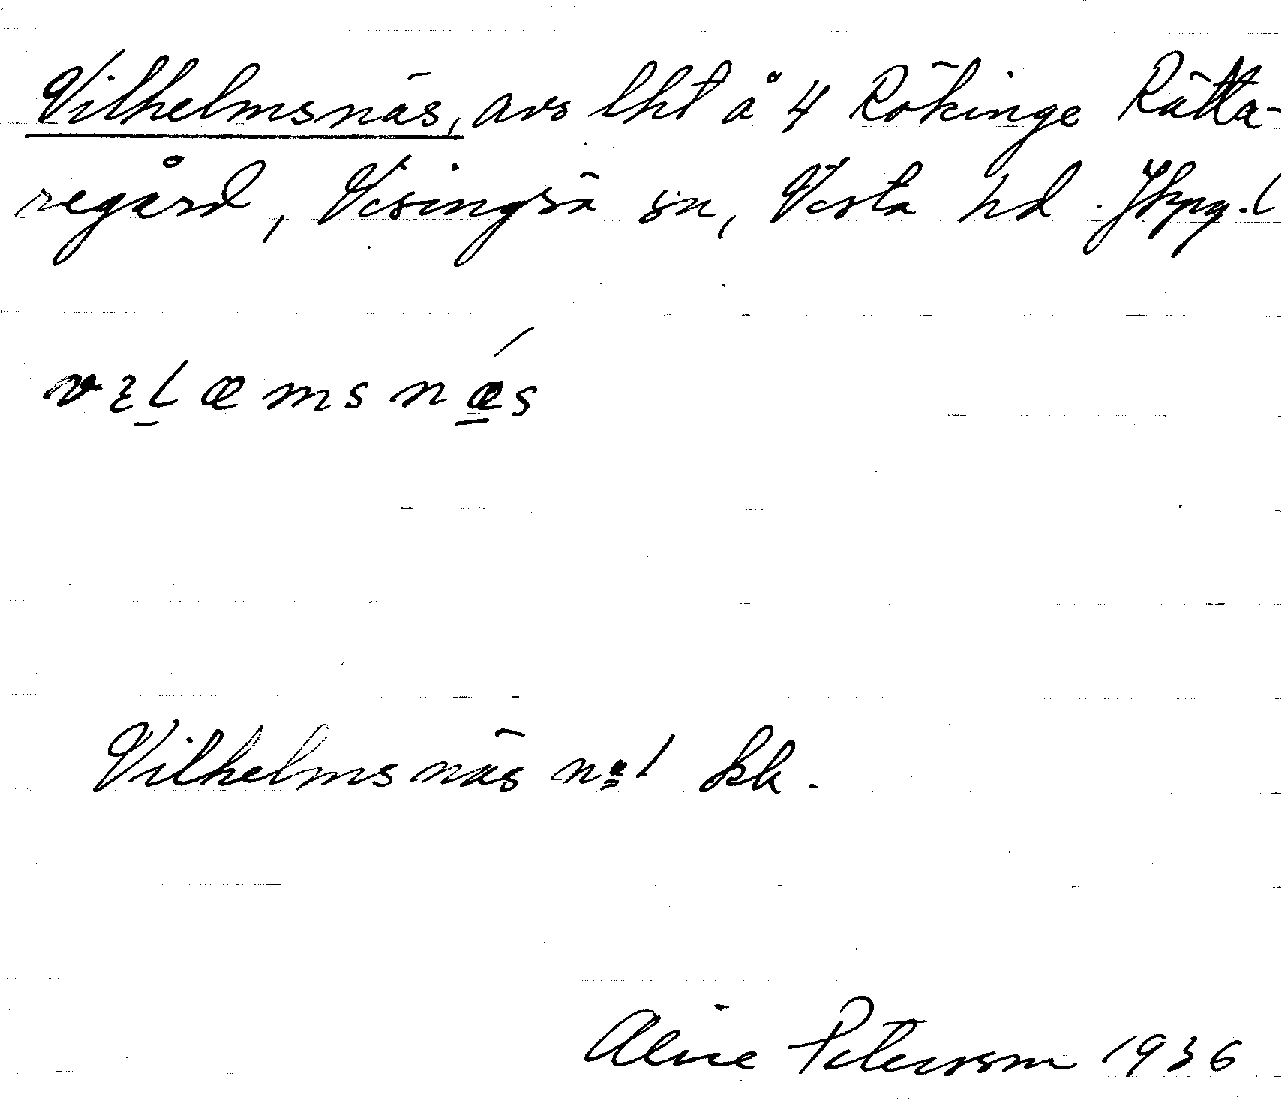 Vilhelmsnäs, avs lht å 4 Rökinge Rätta-
regård, Visingsö sn, Vista hd. Jkpg. l
vɪl̲æmsnǽ̲s
Vilhelmsnäs no 1 kk.
Aline Petersson 1936